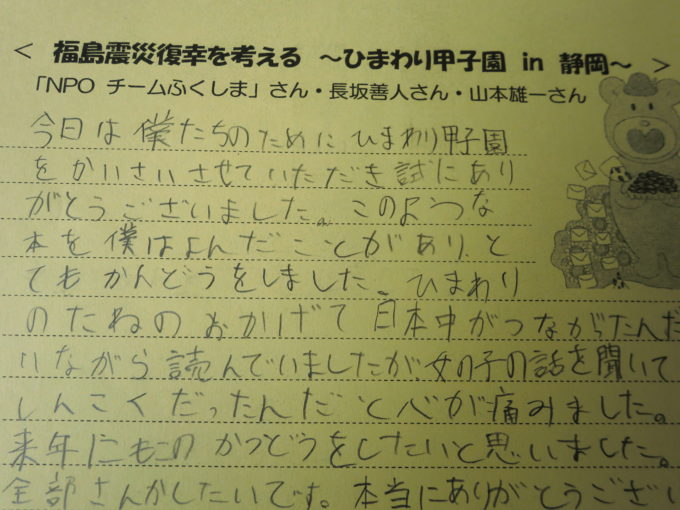 < 福島震災復幸を考える ～ひまわり甲子園 in 静岡～ >
「NPO チームふくしま」さん・長坂善人さん・山本雄一さん
今日は僕たちのために ひまわり甲子園
をかいさいさせていただき試にあり
がとうございました。このような
本を僕はよんだことがあり、と
てもかんどうをしました。ひまわり
のたねのおかげで日本中がつながったんだ
いながら読んでいましたが、女の子の話を聞いて
しんこくだったんだと心が痛みました。
来年にもこのかつどうをしたいと思いました。
全部さんかしたいです。本当にありがとうござい